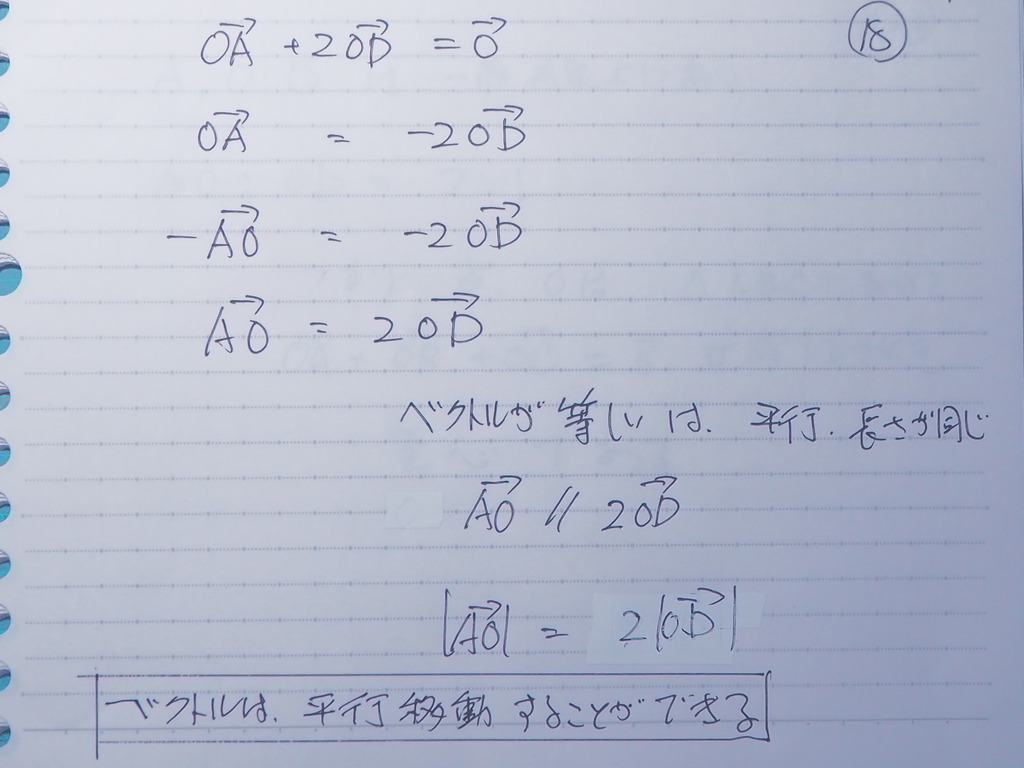 ⑱
OA→ + 2OD→ = 0→
OA→ = -2OD→
-AO→ = -2OD→
AO→ = 2OD→
ベクトルが等しいは、平行、長さが同じ
AO→ // 2OD→
|AO→| = 2|OD→|
ベクトルは、平行移動することができる